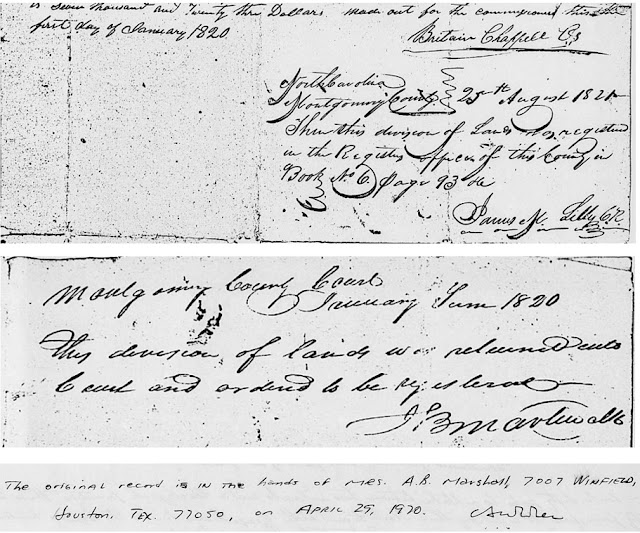 is Seven thousand and Twenty three Dollars made out for the commissioned this the
first day of January 1820
Britain Chappell CS
North Carolina
Montgomery County 25th August 1821
Then this division of Lands was registered
in the Registers office of this County in
Book No 6. Page 93 &c
James M. Lilly CR
Montgomery County Court
January Term 1820
This division of lands was returned into
Court and ordered to be registered
The original record is in the hands of Mrs. A.B. Marshall, 7007 Winfield,
Houston, Tex. 77050, on April 29, 1970.